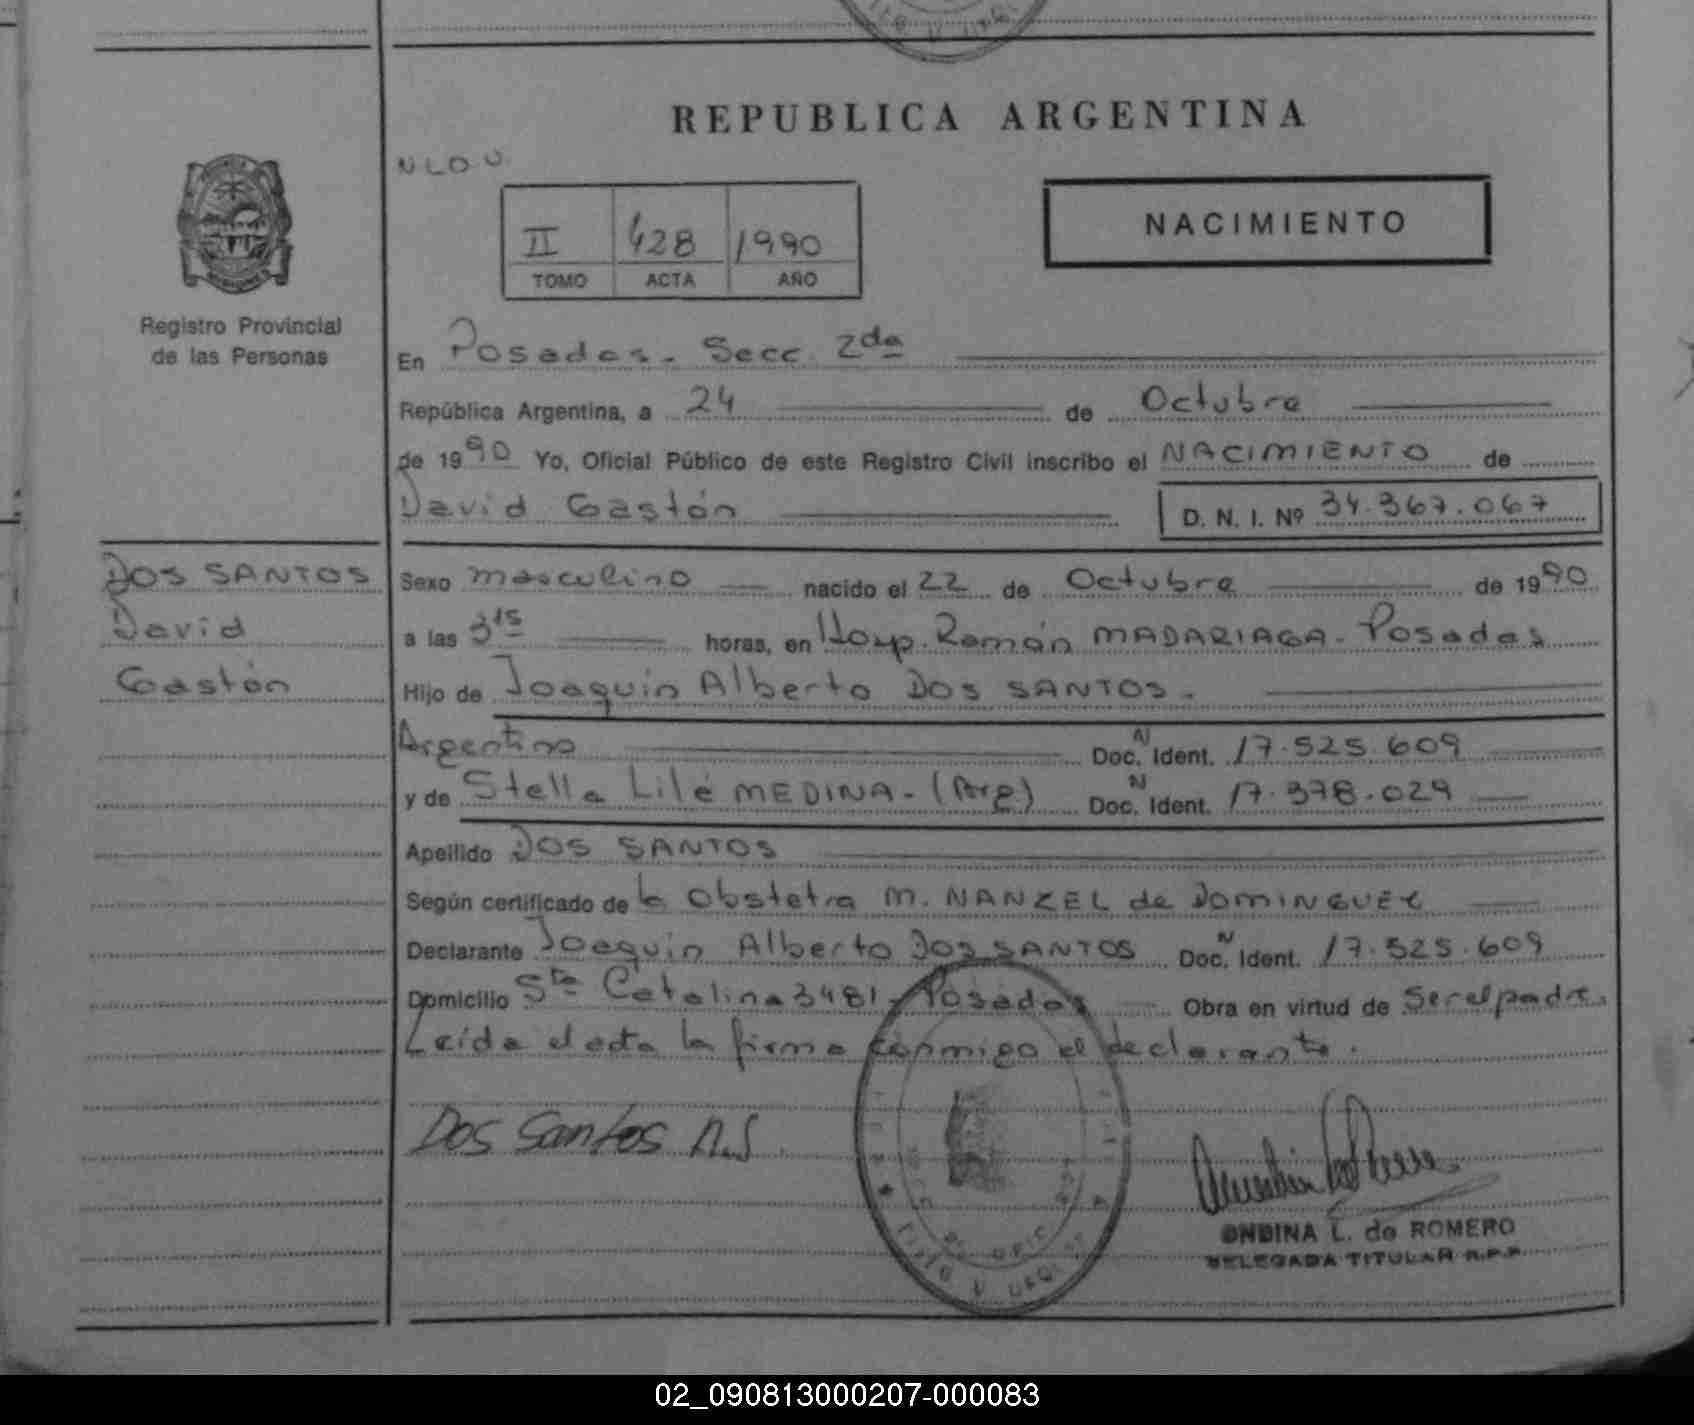 REPUBLICA ARGENTINA
N L O U
II 428 1990
TOMO ACTA AÑO
NACIMIENTO
Registro Provincial
de las Personas
En Posadas - Secc. 2da
República Argentina, a 24 de Octubre
de 1990 Yo, Oficial Público de este Registro Civil inscribo el NACIMIENTO de
David Gastón D. N. I. Nº 34.367.067
DOS SANTOS
David
Gastón
Sexo masculino nacido el 22 de Octubre de 1990
a las 3 15 horas, en Hosp. Ramón MADARIAGA - Posadas
Hijo de Joaquin Alberto DOS SANTOS.
Argentino Doc. N Ident. 17.525.609
y de Stella Lilé MEDINA - (Arg) Doc. N Ident. 17.378.029
Apellido DOS SANTOS
Según certificado de la Obstetra M. NANZEL de DOMINGUEZ
Declarante Joaquin Alberto DOS SANTOS Doc. N Ident. 17.525.609
Domicilio Sta Catalina 3481 - Posadas Obra en virtud de Ser el padre.
Leída el acta la firma conmigo el declarante.
Dos Santos
ONDINA L. de ROMERO
DELEGADA TITULAR R.P.P.
02_090813000207-000083